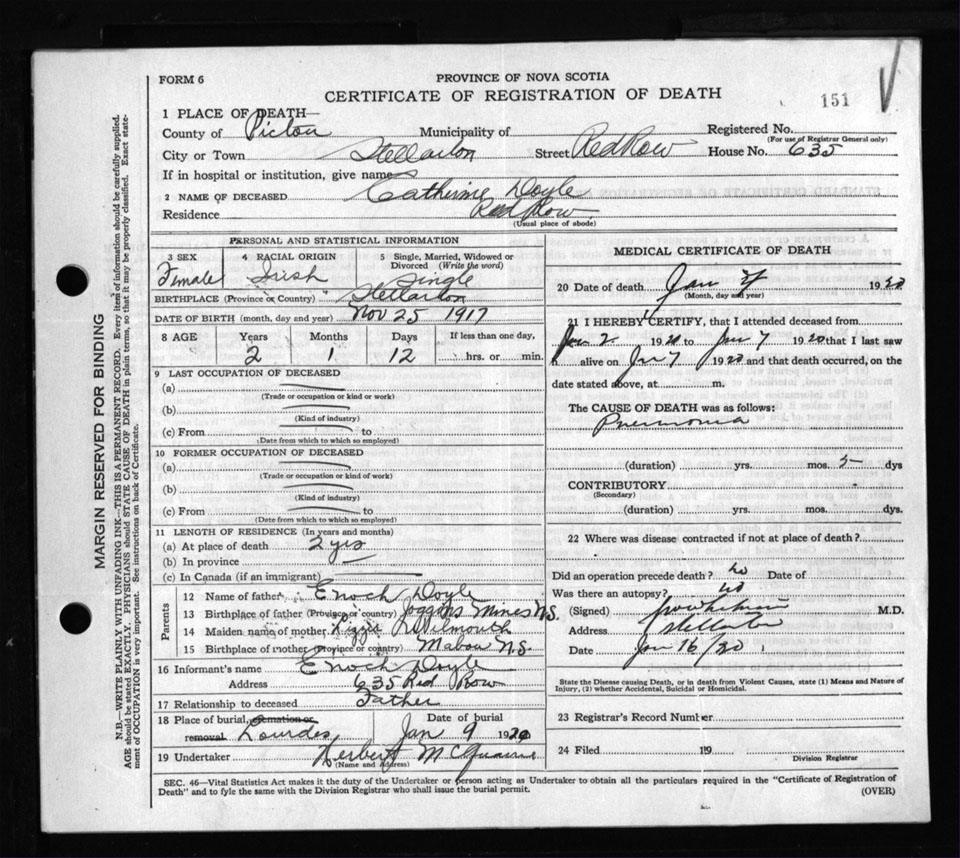 FORM 6
PROVINCE OF NOVA SCOTIA
CERTIFICATE OF REGISTRATION OF DEATH
151
1 PLACE OF DEATH—
County of Pictou Municipality of Registered No.
(For use of Registrar General only)
City or Town Stellarton Street Red Row House No. 635
If in hospital or institution, give name
2 NAME OF DECEASED Catherine Doyle
Residence Red Row
(Usual place of abode)
PERSONAL AND STATISTICAL INFORMATION
3 SEX 4 RACIAL ORIGIN 5 Single, Married, Widowed or Divorced (Write the word)
Female Irish Single
BIRTHPLACE (Province or Country) Stellarton
DATE OF BIRTH (month, day and year) Nov 25 1917
8 AGE Years Months Days If less than one day,
2 1 12 hrs. or min.
9 LAST OCCUPATION OF DECEASED
(a)
(Trade or occupation or kind or work)
(b)
(Kind of industry)
(c) From to
(Date from which to which so employed)
10 FORMER OCCUPATION OF DECEASED
(a)
(Trade or occupation or kind or work)
(b)
(Kind of industry)
(c) From to
(Date from which to which so employed)
11 LENGTH OF RESIDENCE (In years and months)
(a) At place of death 2 yrs
(b) In province
(c) In Canada (if an immigrant)
Parents
12 Name of father Enoch Doyle
13 Birthplace of father (Province or country) Joggins Mines N.S.
14 Maiden name of mother Lizzie
15 Birthplace of mother (Province or country) Mabou N.S.
16 Informant's name Enoch Doyle
Address 635 Red Row
17 Relationship to deceased Father
18 Place of burial, cremation or removal Lourdes Date of burial Jan 9 1920
19 Undertaker Herbert
(Name and Address)
MEDICAL CERTIFICATE OF DEATH
20 Date of death Jan 7 1920
(Month, day and year)
21 I HEREBY CERTIFY, that I attended deceased from
Jan 2 1920 to Jan 7 1920 that I last saw
h alive on Jan 7 1920 and that death occurred, on the
date stated above, at m.
The CAUSE OF DEATH was as follows:
Pneumonia
(duration) yrs. mos. 5 dys
CONTRIBUTORY
(Secondary)
(duration) yrs. mos. dys.
22 Where was disease contracted if not at place of death?
Did an operation precede death? no Date of
Was there an autopsy? no
(Signed) M.D.
Address Stellarton
Date Jan 16/20
State the Disease causing Death, or in death from Violent Causes, state (1) Means and Nature of
Injury, (2) whether Accidental, Suicidal or Homicidal.
23 Registrar's Record Number
24 Filed 19
Division Registrar
SEC. 46—Vital Statistics Act makes it the duty of the Undertaker or person acting as Undertaker to obtain all the particulars required in the "Certificate of Registration of
Death" and to fyle the same with the Division Registrar who shall issue the burial permit.
(OVER)
MARGIN RESERVED FOR BINDING
N.B.—WRITE PLAINLY WITH UNFADING INK—THIS IS A PERMANENT RECORD. Every item of information should be carefully supplied.
AGE should be stated EXACTLY. PHYSICIANS should STATE CAUSE OF DEATH in plain terms, so that it may be properly classified. Exact state-
ment of OCCUPATION is very important. See instructions on back of Certificate.